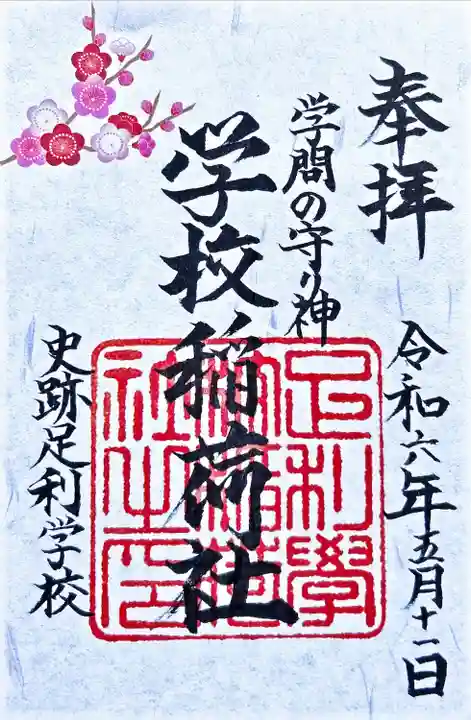 奉拝
令和六年五月十一日
学問の守り神
学校稲荷社
史跡足利学校
足利學
社之印